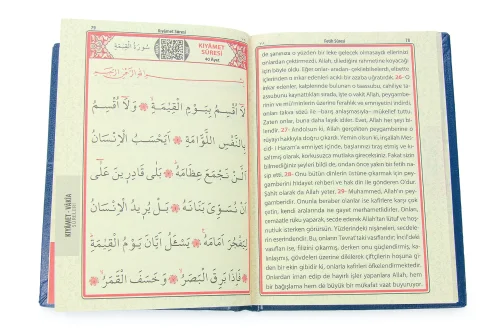 79
Kıyâmet Sûresi
سُورَةُ الْقِيٰمَةِ
KIYÂMET
SÛRESİ
40 Ayet
لَٓا اُقْسِمُ بِيَوْمِ الْقِيٰمَةِۙ وَلَٓا اُقْسِمُ
بِالنَّفْسِ اللَّوَّامَةِ اَيَحْسَبُ الْاِنْسَانُ
اَلَّنْ نَجْمَعَ عِظَامَهُۜ بَلٰى قَادِر۪ينَ عَلٰٓى
اَنْ نُسَوِّيَ بَنَانَهُ بَلْ يُر۪يدُ الْاِنْسَانُ
لِيَفْجُرَ اَمَامَهُۚ يَسْـَٔلُ اَيَّانَ يَوْمُ الْقِيٰمَةِۜ
فَاِذَا بَرِقَ الْبَصَرُۙ وَخَسَفَ الْقَمَرُۙ
KIYÂMET - VÂKIA
Fetih Sûresi
de şanınıza o yüzden bir leke gelecek olmasaydı ellerinizi
onlardan çektirmezdi. Allah, dilediğini rahmetine koyacağı
için böyle oldu. Eğer onlar -aradan- çekilebilselerdi, elbette
içlerinden o inkar edenleri acıklı bir azaba uğratırdık. 26- O
inkar edenler, kalplerinde bulunan o taassubu, cahiliye ta-
assubunu kaynattıkları sırada, işte o vakit Allah, peygambe-
rinin ve mü'minlerin üzerine ferahlık ve emniyetini indirdi,
onları takva sözü ile -barış anlaşmasıyla- mükellef tuttu.
Zaten onlar, buna daha layık diler. Evet, Allah her şeyi bi-
lendir. 27- Andolsun ki, Allah gerçekten peygamberine o
rüyayı hakkıyla doğru gösterdi. Yemin olsun ki, inşallah Mes-
cid-i Haram'a emniyet içinde, başlarınızı tıraş etmiş ve kı-
saltmış olarak, korkusuzca mutlaka gireceksiniz. Fakat sizin
bilmediğiniz şeyleri bildi de, ondan önce yakın bir fetih na-
sip etti. 28- Onu bütün dinlerin üstüne çıkarmak için pey-
gamberini hidayet rehberi ve hak din ile gönderen O'dur.
Şahit olarak da Allah yeter. 29- Muhammed, Allah'ın pey-
gamberidir. Onunla beraber olanlar ise kafirlere karşı çok
çetin, kendi aralarında ise gayet merhametlidirler. Onları,
cemaatle rüku yaparak, secde ederek Allah'tan lütuf ve hoş-
nutluk isterken görürsün. Yüzlerindeki nişaneleri, secde-
lerin eserindendir. Bu, onların Tevrat'taki vasıflarıdır. İncil'deki
vasıfları ise, filizini çıkarmış, derken onu güçlendirmiş, ka-
lınlaşmış, gövdesi üzerine dikilerek çiftçilerin hoşuna gi-
den bir ekin gibidir ki, onlarla kafirleri öfkelendirmektedir.
Onlardan iman edip de hayırlı işler yapanlara Allah, hem
bir bağışlama hem de büyük bir mükafat vaat buyuruyor.